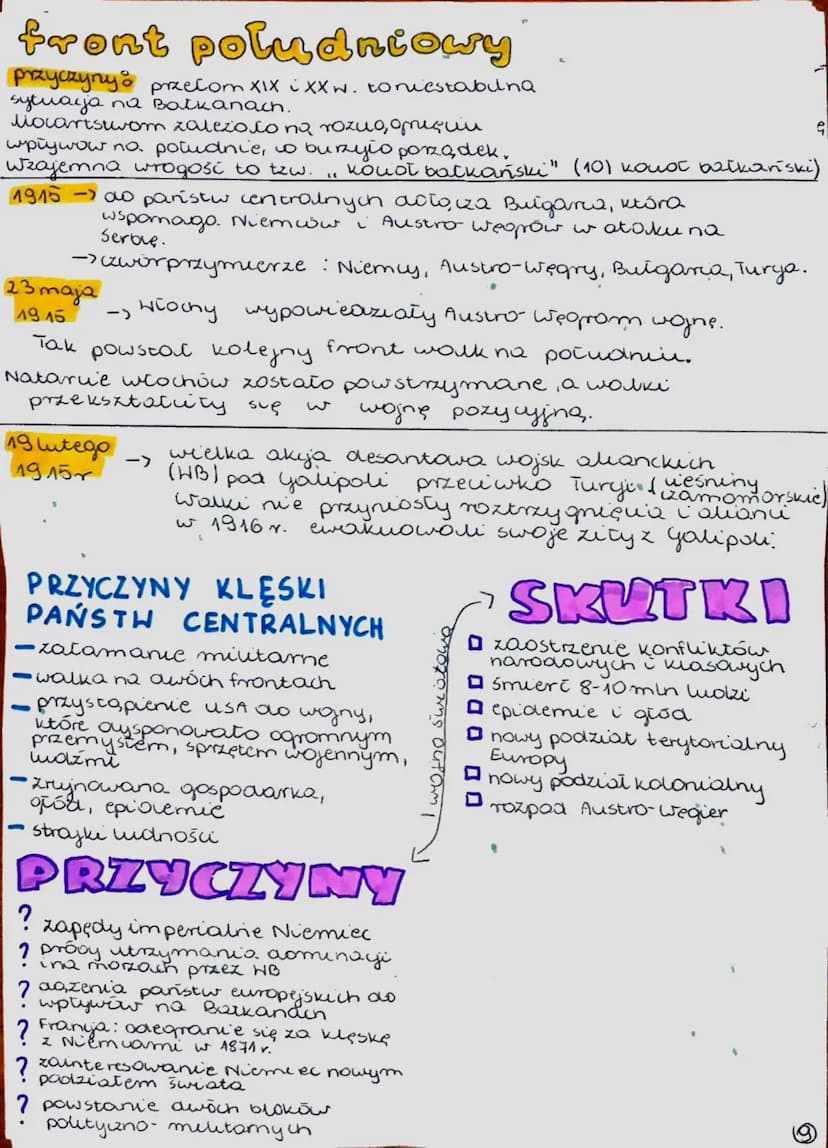 front południowy
przyczyny: przełom XIX i XX w. to niestabilna
sytuacja na Bałkanach.
Mocarstwom zależało na rozciągnięciu
wpływów na południe, co burzyło porządek.
Wzajemna wrogość to tzw. „kocioł bałkański" (10) kocioł bałkański)
1915 → do państw centralnych dołącza Bułgaria, która
wspomaga Niemców i Austro-Węgrów w ataku na
Serbię.
→ czwórprzymierze : Niemcy, Austro-Węgry, Bułgaria, Turcja.
23 maja
1915 → Włochy wypowiedziały Austro-Węgrom wojnę.
Tak powstał kolejny front walk na południu.
Natarcie Włochów zostało powstrzymane, a walki
przekształciły się w wojnę pozycyjną.
19 lutego
1915r → wielka akcja desantowa wojsk alianckich
(WB) pod Galipoli przeciwko Turcji. (cieśniny
czarnomorskie)
Walki nie przyniosły roztrzygnięcia i alianci
w 1916 r. ewakuowali swoje ziły z Galipoli.
PRZYCZYNY KLĘSKI
PAŃSTW CENTRALNYCH
– załamanie militarne
– walka na dwóch frontach
– przystąpienie USA do wojny,
które dysponowało ogromnym
przemysłem, sprzętem wojennym,
ludźmi
– zrujnowana gospodarka,
głód, epidemie
– strajki ludności
I wojna światowa
SKUTKI
□ zaostrzenie konfliktów
narodowych i klasowych
□ śmierć 8-10 mln ludzi
□ epidemie i głód
□ nowy podział terytorialny
Europy
□ nowy podział kolonialny
□ rozpad Austro-Węgier
PRZYCZYNY
? zapędy imperialne Niemiec
? próby utrzymania dominacji
i na morzach przez WB
? dążenia państw europejskich do
wpływów na Bałkanach
? Francja: odegranie się za klęskę
z Niemcami w 1871 r.
? zainteresowanie Niemiec nowym
podziałem świata
? powstanie dwóch bloków
polityczno-militarnych
(9)